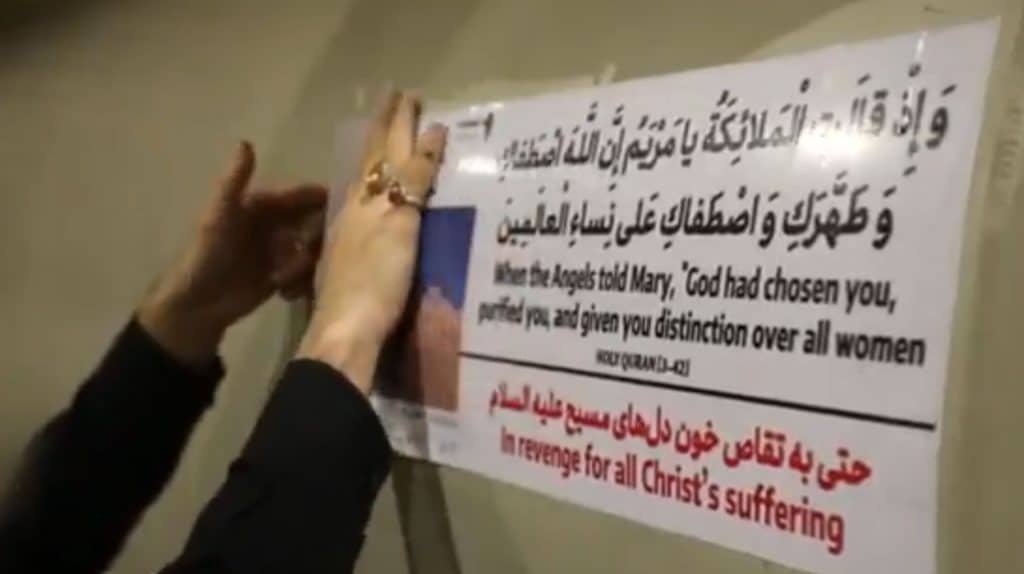 وَ إِذْ قالَتِ الْمَلائِكَةُ يا مَرْيَمُ إِنَّ اللَّهَ اصْطَفاكِ
وَ طَهَّرَكِ وَ اصْطَفاكِ عَلى نِساءِ الْعالَمِينَ
When the Angels told Mary, "God had chosen you,
purified you, and given you distinction over all women
HOLY QURAN [3-42]
حتی به تقاص خون دل‌های مسیح علیه السلام
In revenge for all Christ's suffering